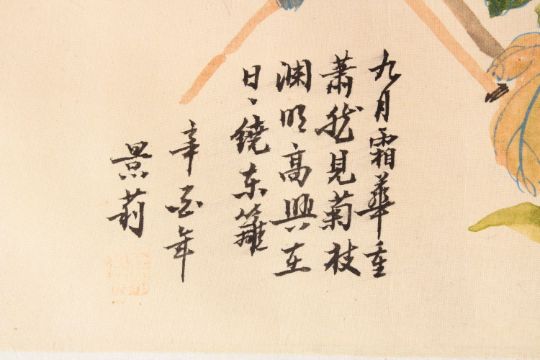 九月霜華重
蕭然見菊枝
渊明高興在
日、繞东籬
辛酉年
景莉